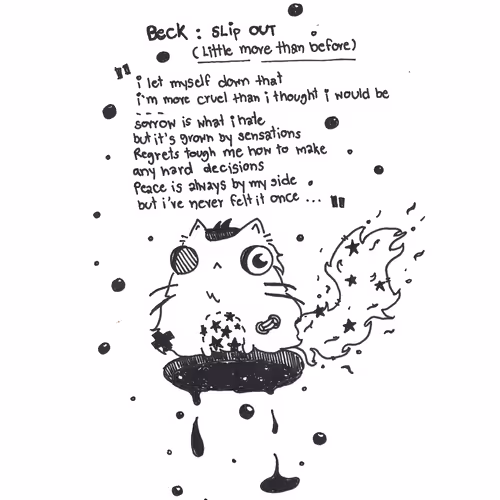 Beck : SLip OUT
(Little more than before)
" i let myself down that
i'm more cruel than i thought i would be
sorrow is what i hate
but it's grown by sensations
Regrets tough me how to make
any hard decisions
Peace is always by my side
but i've never felt it once ... "